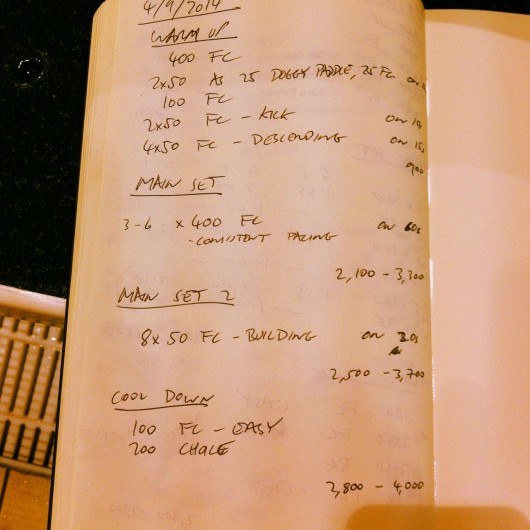 4/9/2014
WARM UP
400 FC
2x50 AS 25 DOGGY PADDLE, 25 FC on
100 FC
2x50 FC - KICK on 15s
4x50 FC - DESCENDING on 15s
900
MAIN SET
3-6 x 400 FC on 60s
- CONSISTENT PACING
2,100 - 3,300
MAIN SET 2
8x50 FC - BUILDING on 20s
2,500 - 3,700
COOL DOWN
100 FC - EASY
200 CHOICE
2,800 - 4,000